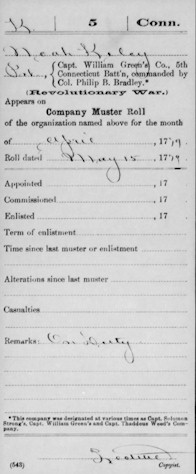 K 5 Conn.
Noah Keley
Pvt., Capt. William Green's Co., 5th
Connecticut Batt'n, commanded by
Col. Philip B. Bradley.*
(Revolutionary War.)
Appears on
Company Muster Roll
of the organization named above for the month
of April, 1779.
Roll dated May 15, 1779.
Appointed , 17
Commissioned , 17
Enlisted , 17
Term of enlistment
Time since last muster or enlistment
Alterations since last muster
Casualties
Remarks: On Duty
*This company was designated at various times as Capt. Solomon
Strong's, Capt. William Green's and Capt. Thaddeus Weed's Com-
pany.
(543) Copyist.